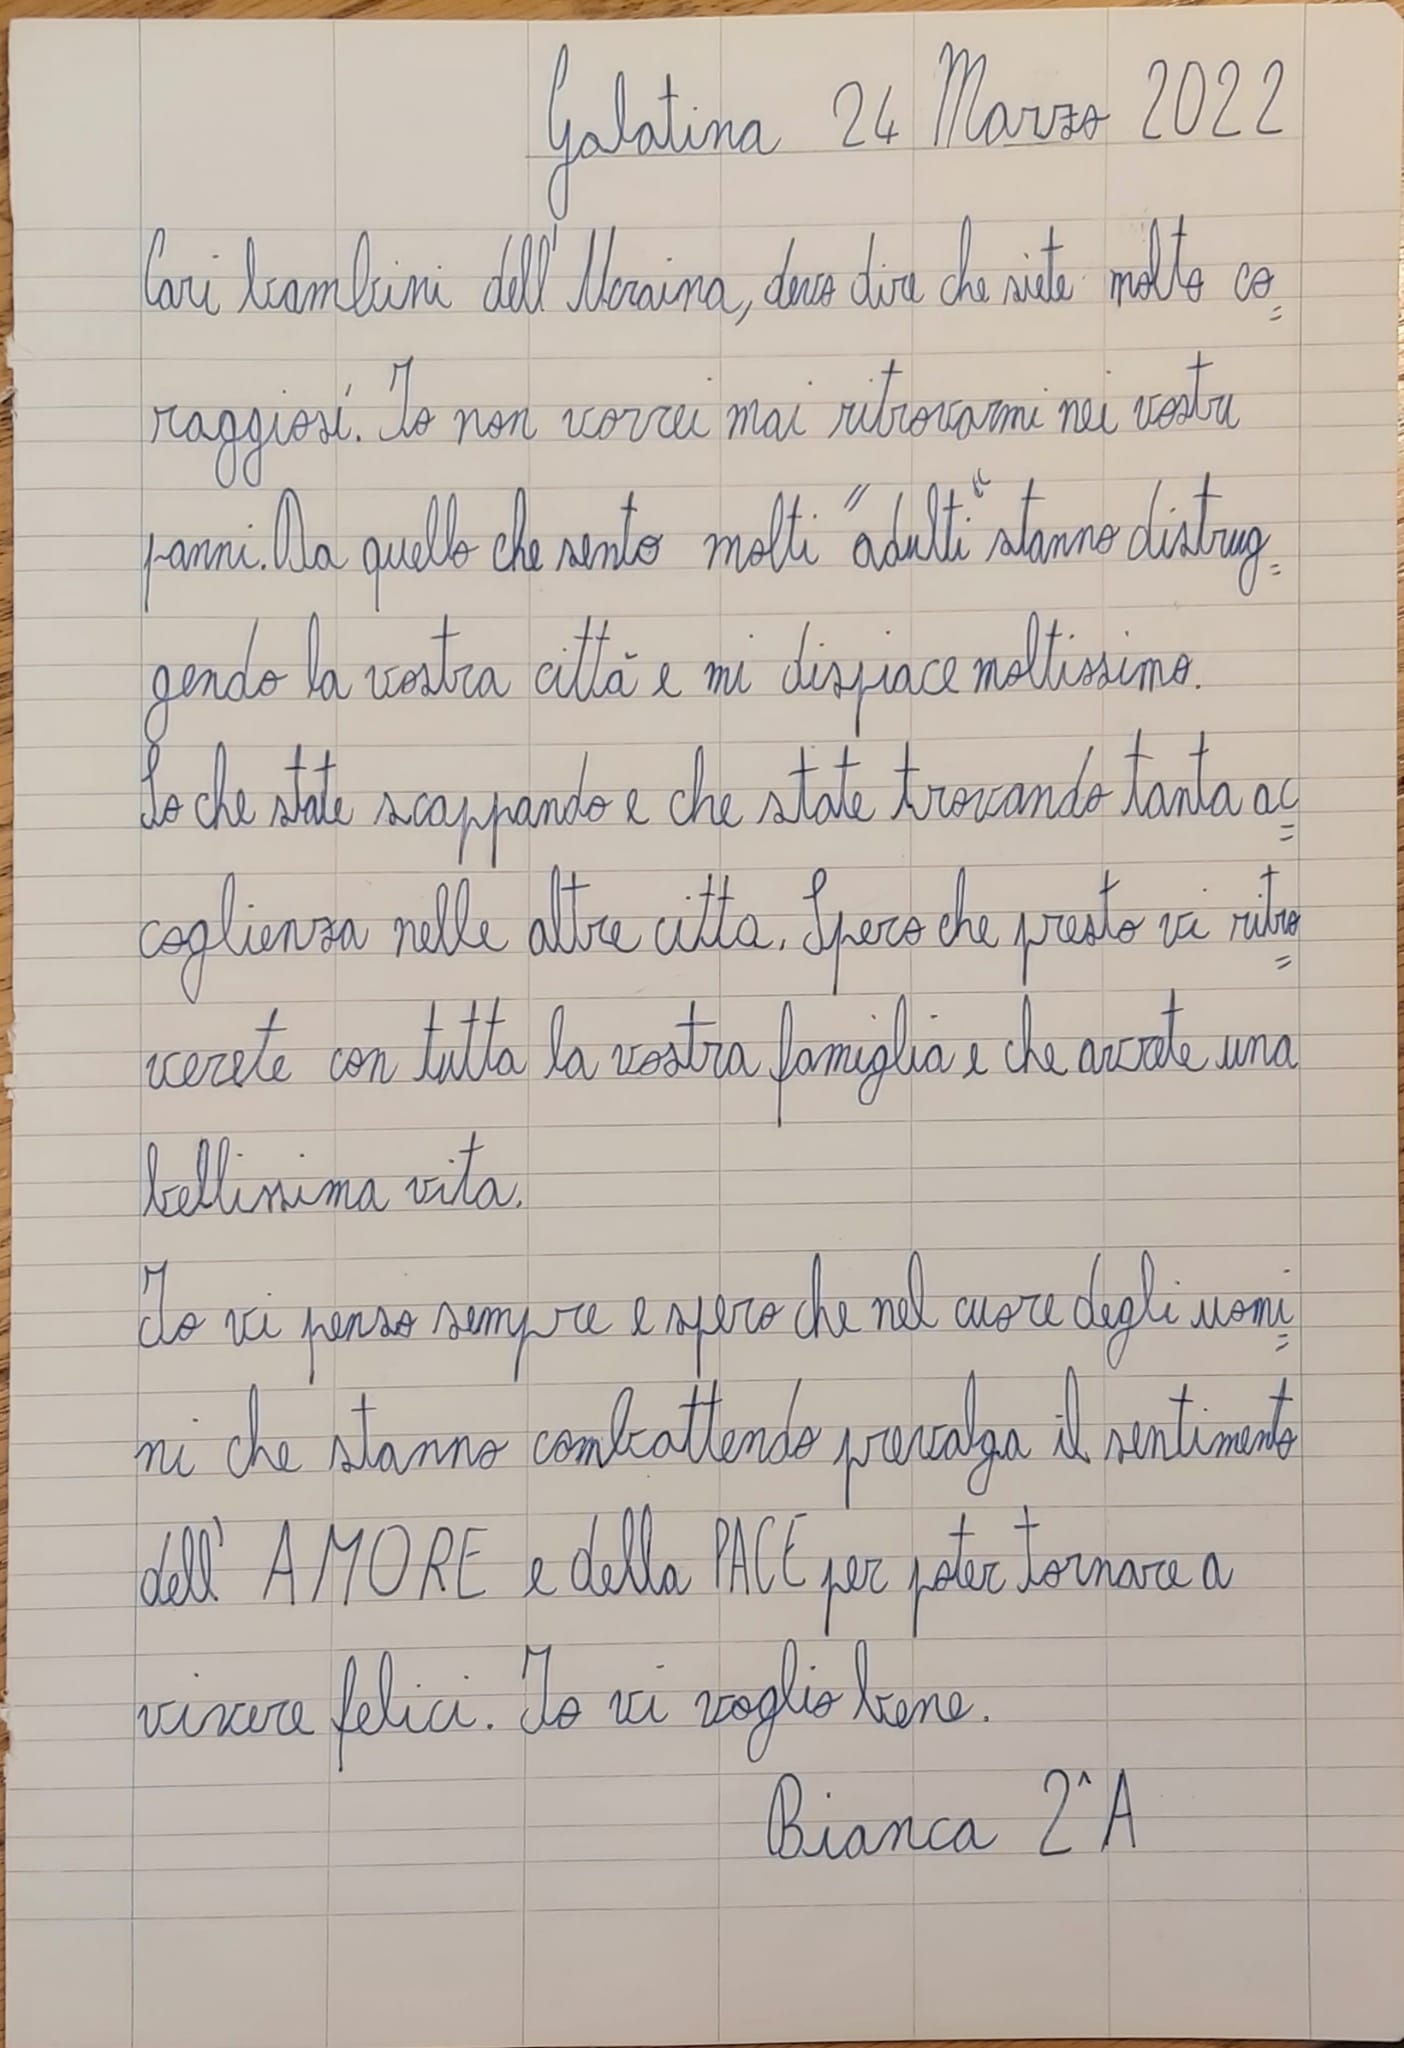 Galatina 24 Marzo 2022
Cari bambini dell'Ucraina, devo dire che siete molto co=
raggiosi. Io non vorrei mai ritrovarmi nei vostri
panni. Da quello che sento molti "adulti" stanno distrug=
gendo la vostra città e mi dispiace moltissimo.
So che state scappando e che state trovando tanta ac=
coglienza nelle altre citta. Spero che presto vi ritro=
verete con tutta la vostra famiglia e che avrete una
bellissima vita.
Io vi penso sempre e spero che nel cuore degli uomi=
ni che stanno combattendo prevalga il sentimento
dell'AMORE e della PACE per poter tornare a
vivere felici. Io vi voglio bene.
Bianca 2^A